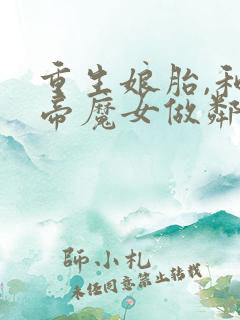 重生娘胎,和
帝魔女做鄰
師小札
未经同意禁止转载